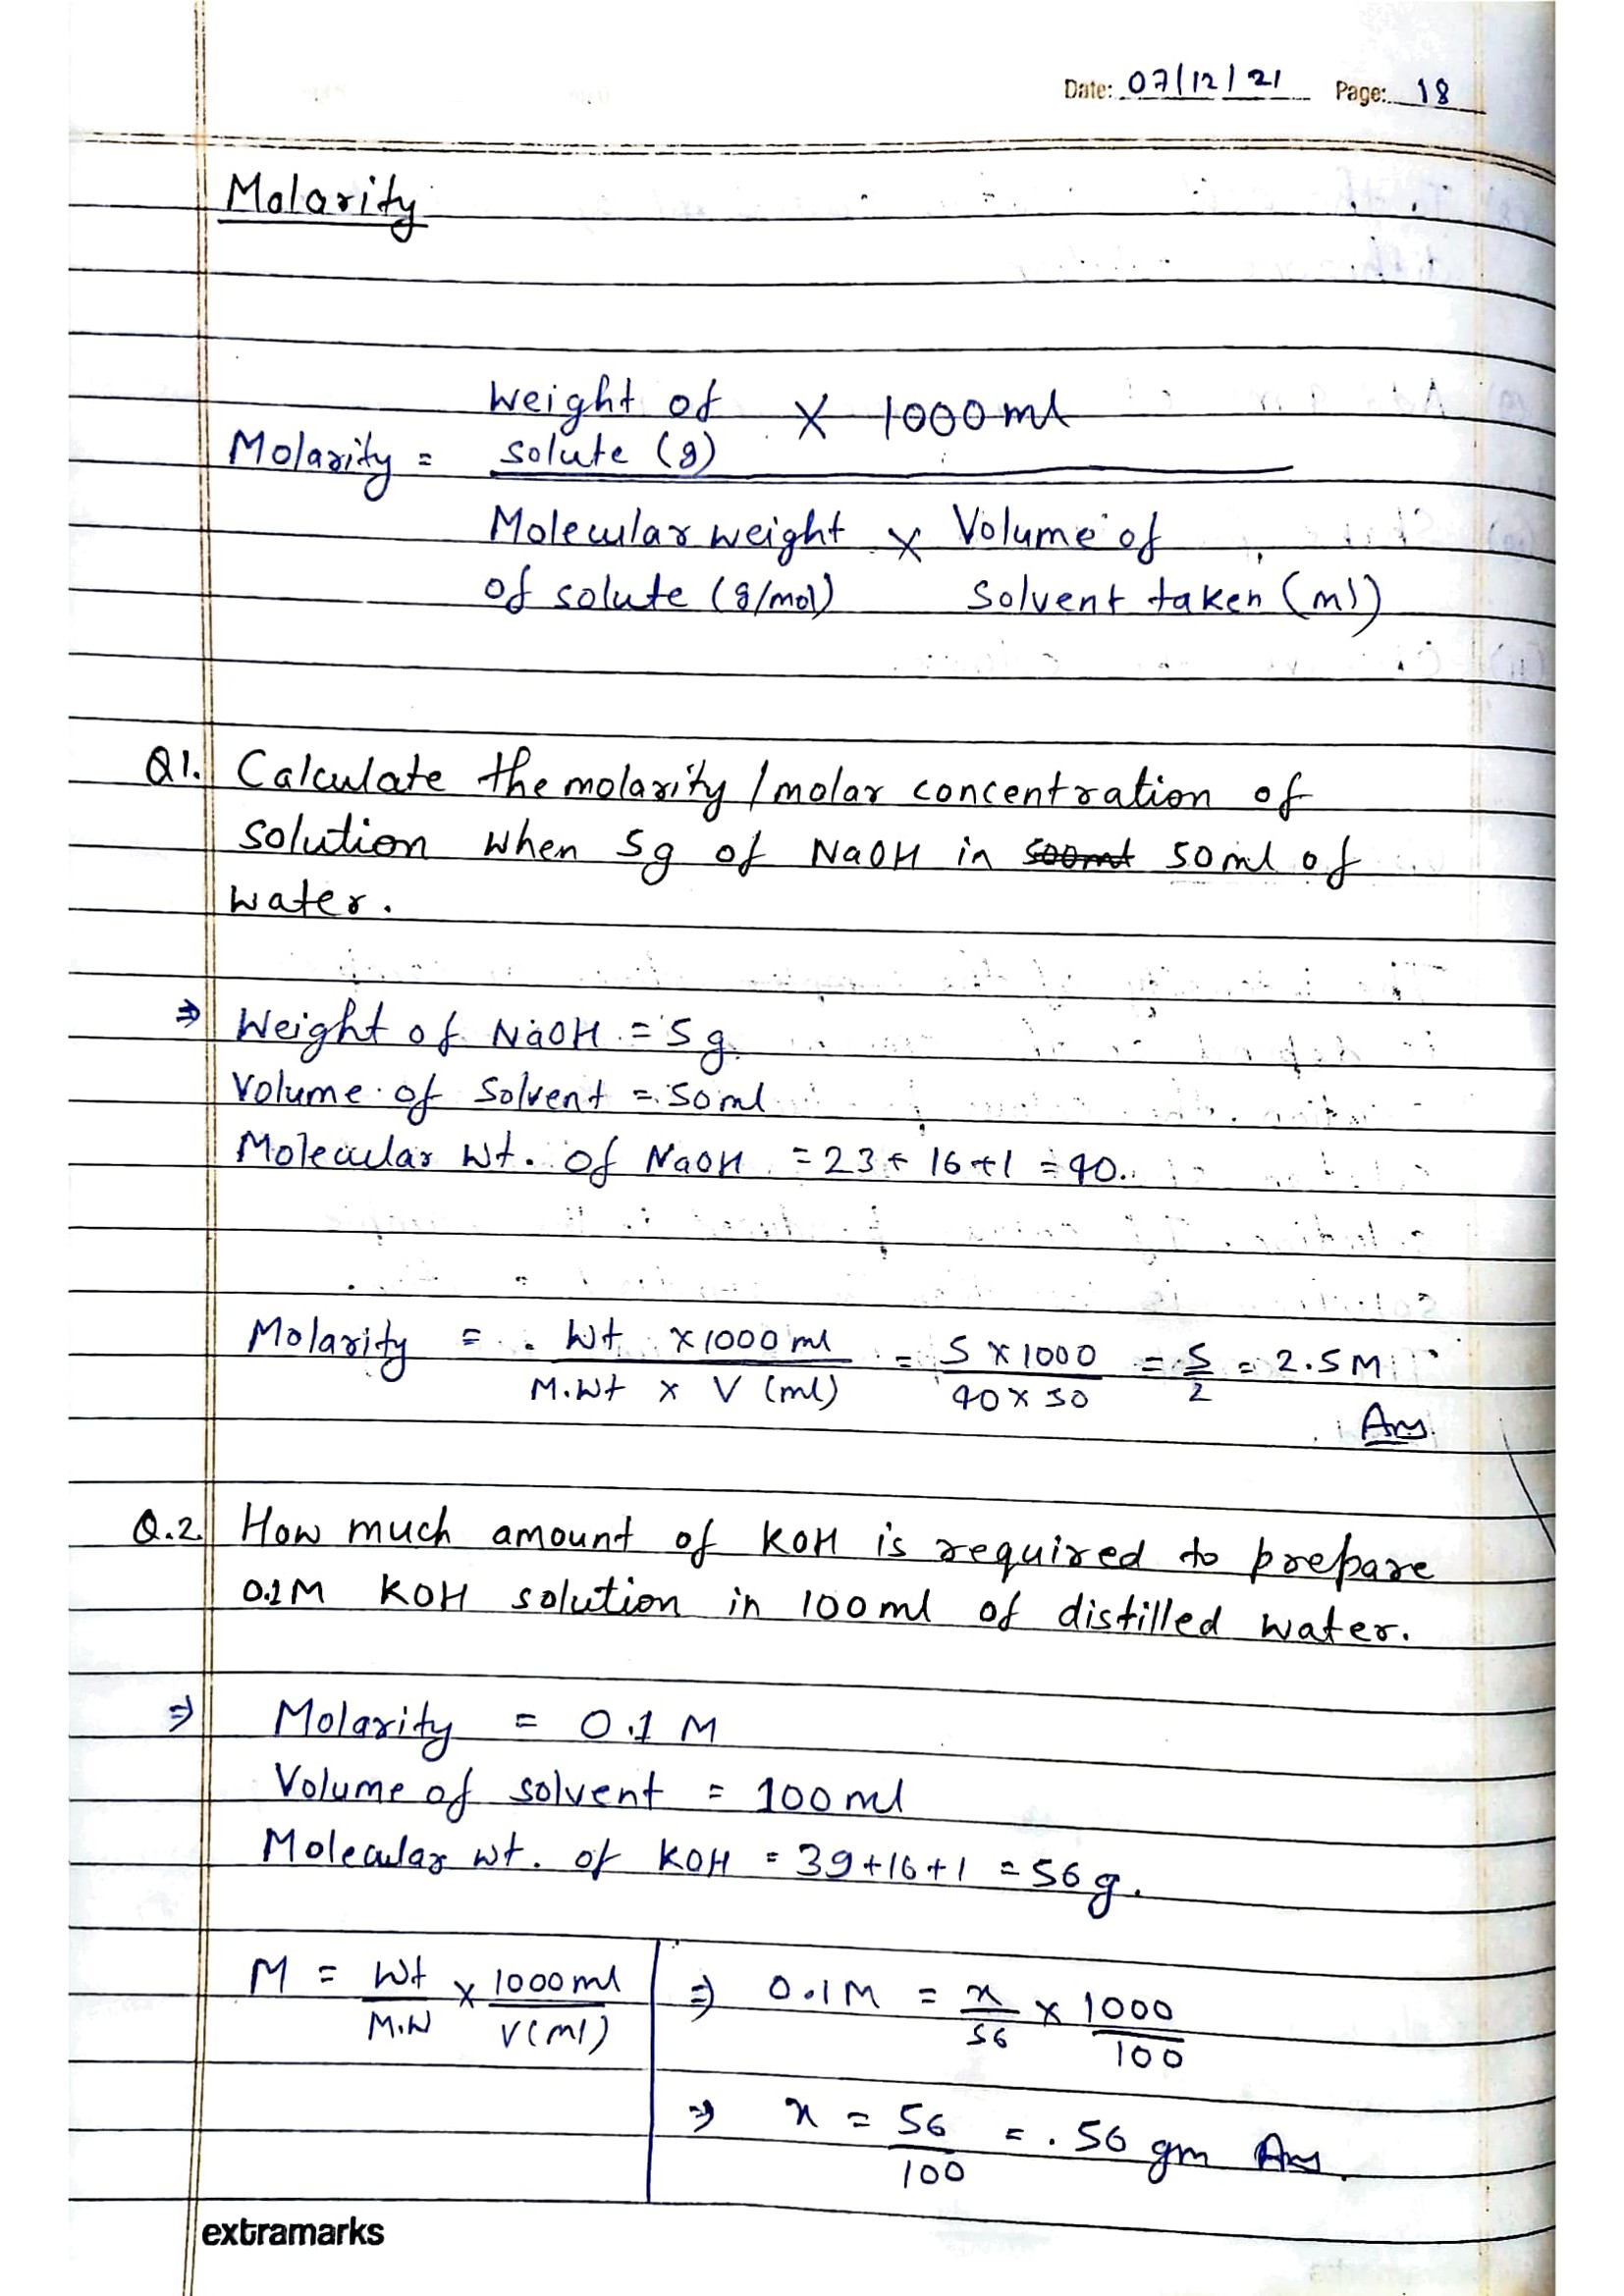 Date: 07/12/21 Page: 18
Molarity
Molarity = Weight of solute (g) × 1000ml
Molecular weight of solute (g/mol) × Volume of Solvent taken (ml)
Q1. Calculate the molarity / molar concentration of
solution when 5g of NaOH in 500ml 50ml of
water.
⇒ Weight of NaOH = 5g.
Volume of Solvent = 50ml
Molecular Wt. of NaOH = 23+16+1 = 40.
Molarity = Wt × 1000 ml / M.Wt × V (ml) = 5 × 1000 / 40 × 50 = 5/2 = 2.5M
Ans.
Q.2. How much amount of KOH is required to prepare
0.1M KOH solution in 100ml of distilled water.
⇒ Molarity = 0.1 M
Volume of solvent = 100ml
Molecular wt. of KOH = 39+16+1 = 56g.
M = Wt/M.W × 1000ml/V(ml) ⇒ 0.1M = x/56 × 1000/100
⇒ x = 56/100 = .56 gm Ans.
extramarks